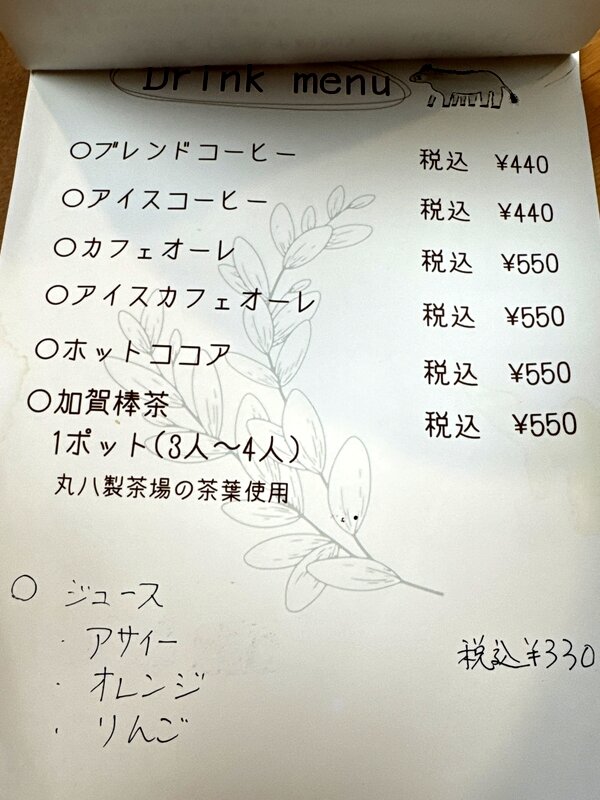 Drink menu
○ブレンドコーヒー 税込 ¥440
○アイスコーヒー 税込 ¥440
○カフェオーレ 税込 ¥550
○アイスカフェオーレ 税込 ¥550
○ホットココア 税込 ¥550
○加賀棒茶 税込 ¥550
1ポット(3人〜4人)
丸八製茶場の茶葉使用
○ ジュース
・アサイー 税込¥330
・オレンジ
・りんご